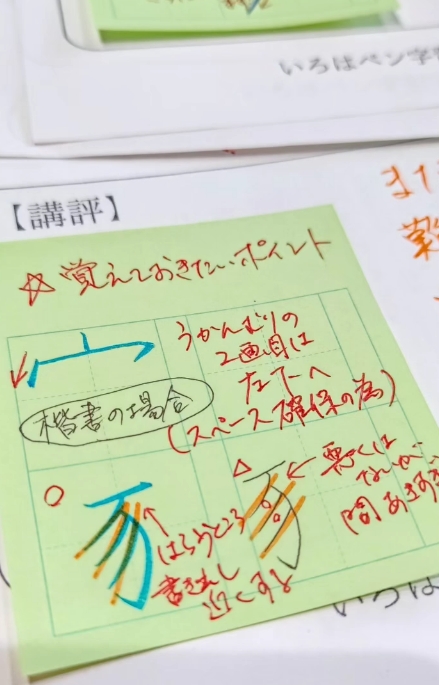 いろはペン字
また
【講評】
☆覚えておきたいポイント
うかんむりの
2画目は
左下へ
(スペース確保の為)
楷書の場合
○
はらうところ
書き出し
近くする
△
悪くは
ないが、
間あきすぎ
いろは